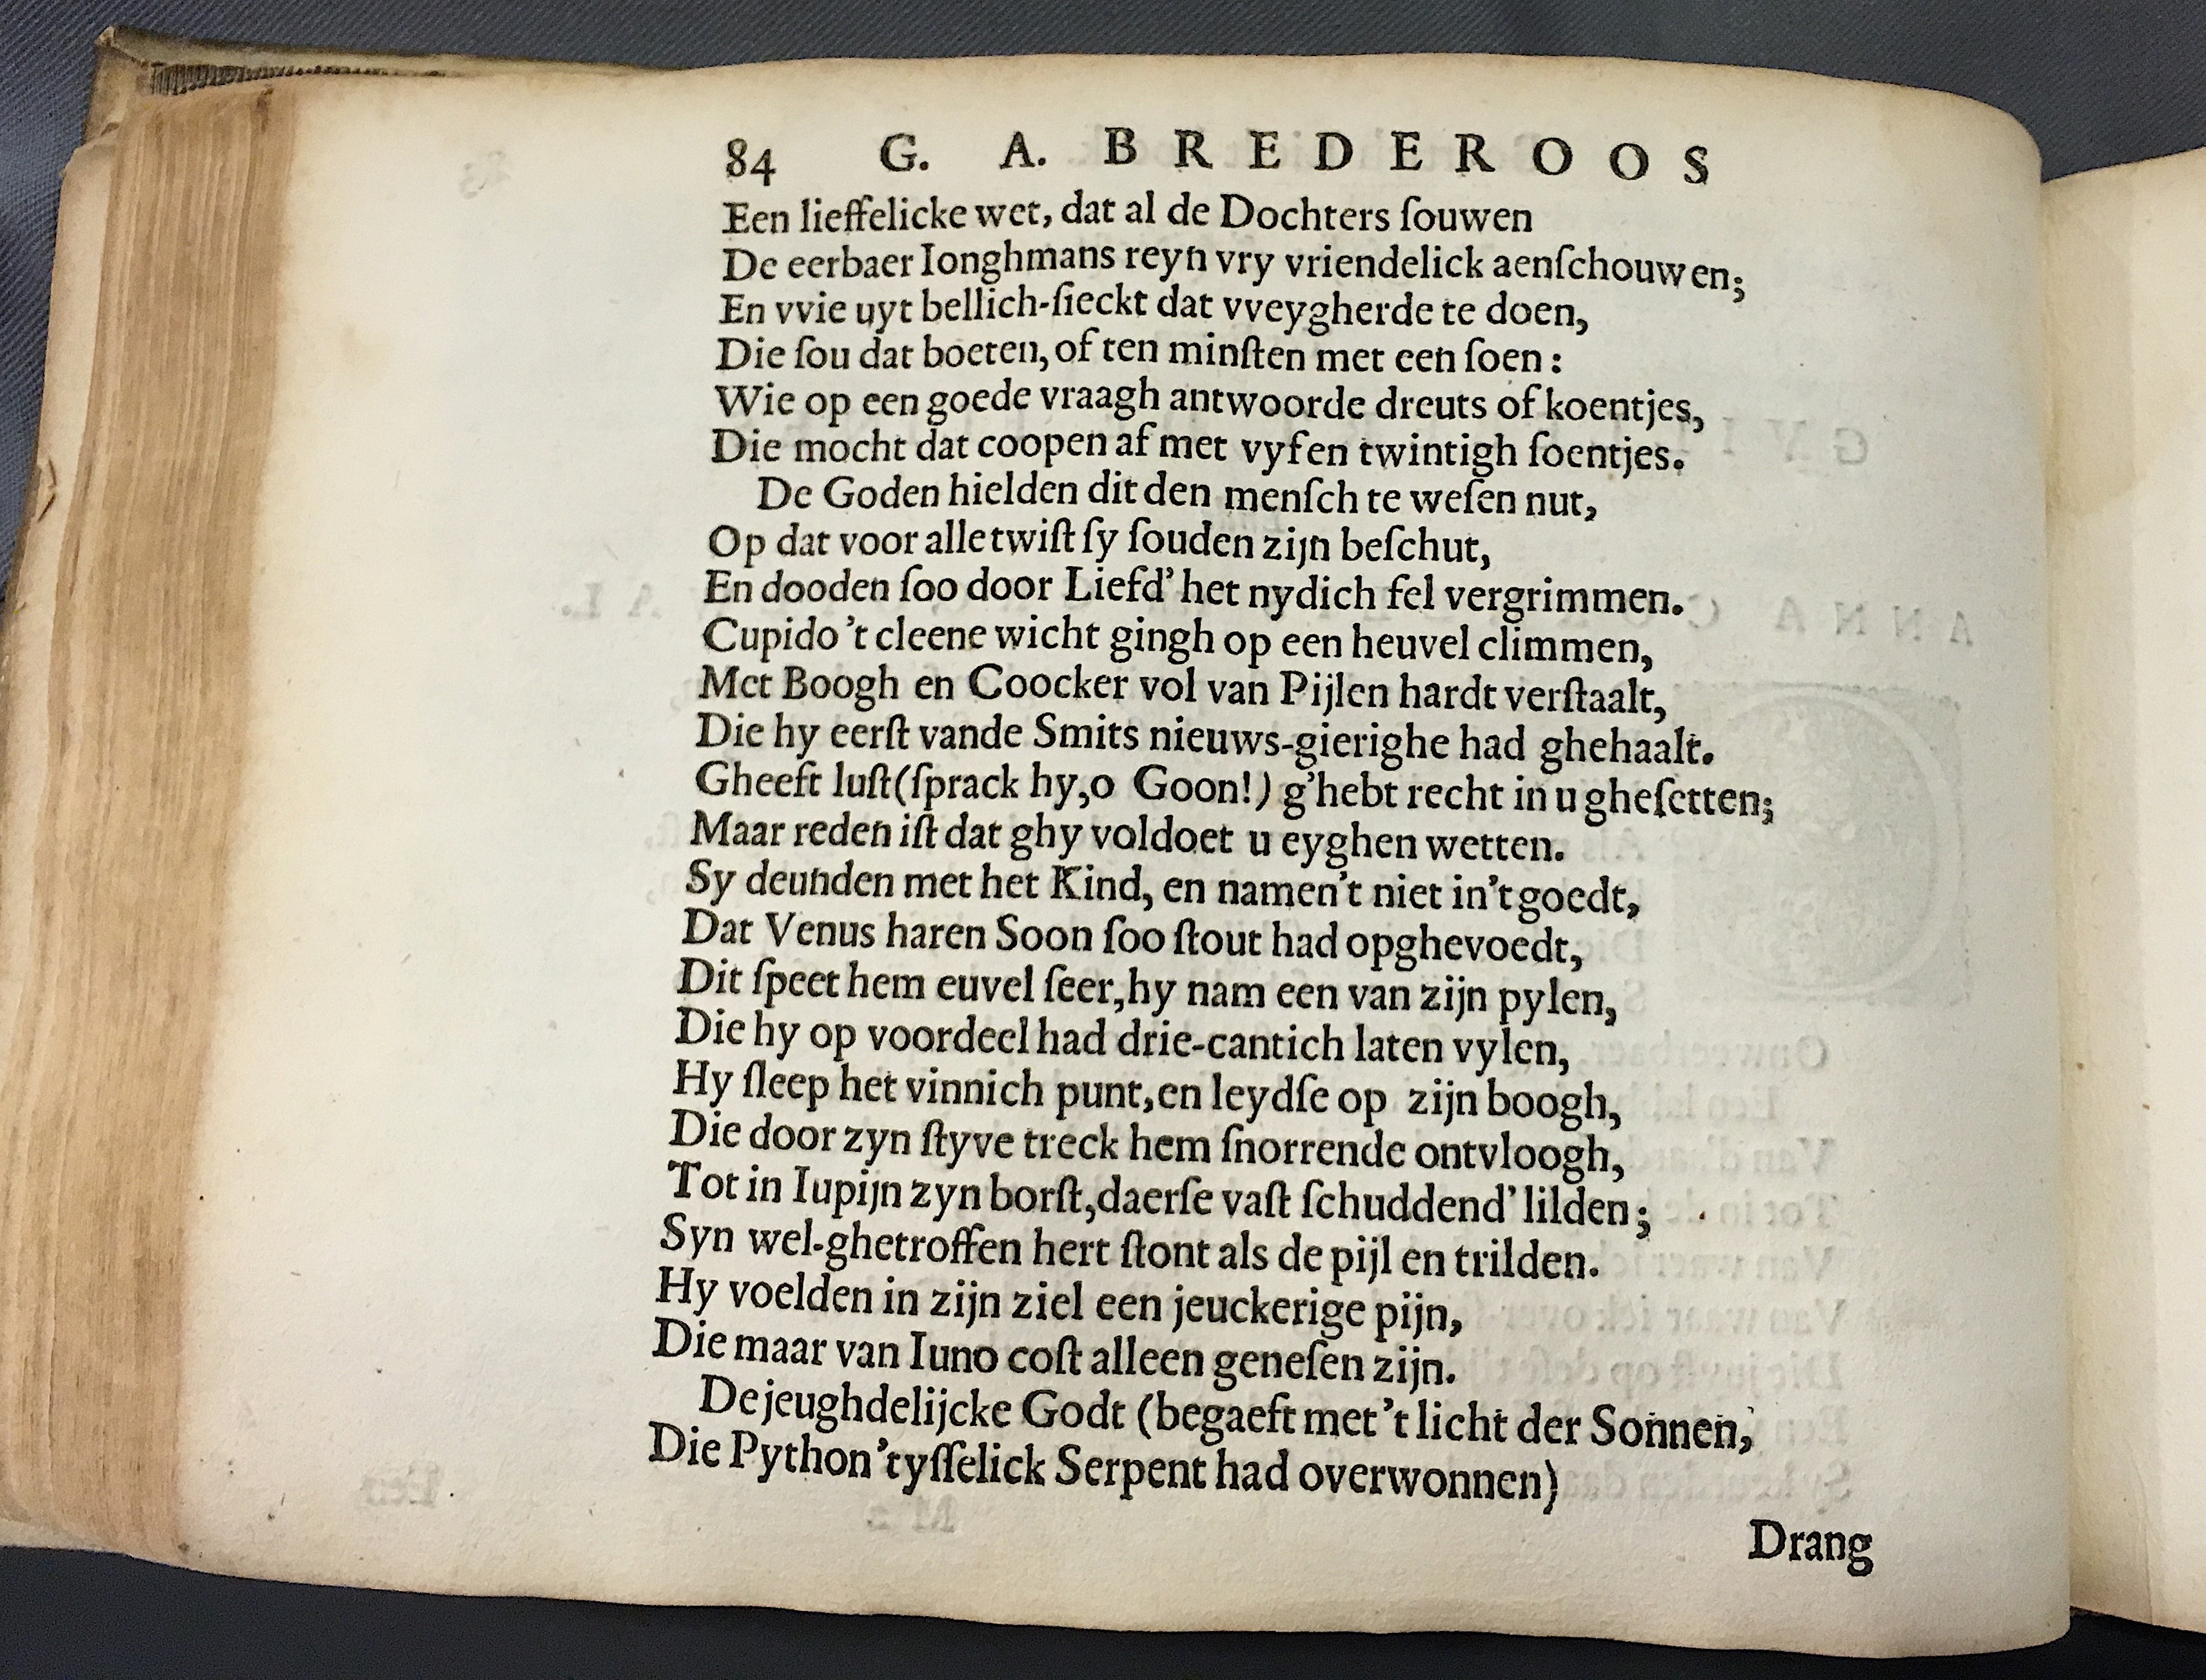 84 G. A. BREDEROOS
Een lieffelicke wet, dat al de Dochters ſouwen
De eerbaer Ionghmans reyn vry vriendelick aenſchouwen;
En vvie uyt bellich-ſieckt dat vveygherde te doen,
Die ſou dat boeten, of ten minſten met een ſoen:
Wie op een goede vraagh antwoorde dreuts of koentjes,
Die mocht dat coopen af met vyf en twintigh ſoentjes.
De Goden hielden dit den menſch te weſen nut,
Op dat voor alle twiſt ſy ſouden zijn beſchut,
En dooden ſoo door Liefd' het nydich fel vergrimmen.
Cupido 't cleene wicht gingh op een heuvel climmen,
Met Boogh en Coocker vol van Pijlen hardt verſtaalt,
Die hy eerſt vande Smits nieuws-gierighe had ghehaalt.
Gheeft luſt (ſprack hy, o Goon!) g'hebt recht in u gheſetten;
Maar reden iſt dat ghy voldoet u eyghen wetten.
Sy deunden met het Kind, en namen't niet in't goedt,
Dat Venus haren Soon ſoo ſtout had opghevoedt,
Dit ſpeet hem euvel ſeer, hy nam een van zijn pylen,
Die hy op voordeel had drie-cantich laten vylen,
Hy ſleep het vinnich punt, en leydſe op zijn boogh,
Die door zyn ſtyve treck hem ſnorrende ontvloogh,
Tot in Iupijn zyn borſt, daerſe vaſt ſchuddend' lilden;
Syn wel-ghetroffen hert ſtont als de pijl en trilden.
Hy voelden in zijn ziel een jeuckerige pijn,
Die maar van Iuno coſt alleen geneſen zijn.
De jeughdelijcke Godt (begaeft met 't licht der Sonnen,
Die Python 'tyſſelick Serpent had overwonnen)
Drang